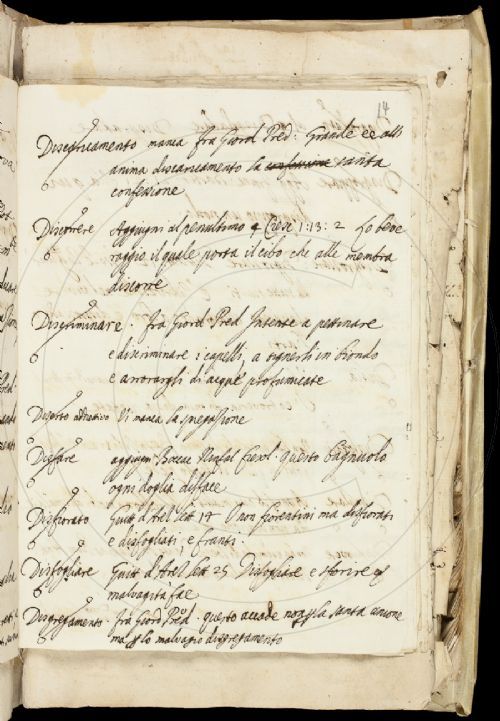 14
Discaricamento manca fra Giord Pred: Grande è all
anima discaricamento la confessione santa
confessione
Discorrere Aggiugni al penultimo § Cresc 1:13:2 Lo beve
raggio il quale porta il cibo che alle membra
discorre
Discriminare. fra Giord. Pred Intente a pettinare
e discriminare i capelli, a tignerli in biondo
e arrorargli di acque profumicate
Diserto addiettivo Vi manca la spiegazione
Disfare aggiugni Bocc Ninfal Fiesol. questo bagnuolo
ogni doglia disface
Disfiorato Guitt d'Arel Lett 14 O non fiorentini ma disfiorati
e disfogliati, e franti.
Disfogliare Guitt d'Arel Lett 25 Disfogliare e sfiorire
malvagità fae
Disgregamento. fra Giord Pred. questo accade non la santa unione
ma lo malvagio disgregamento